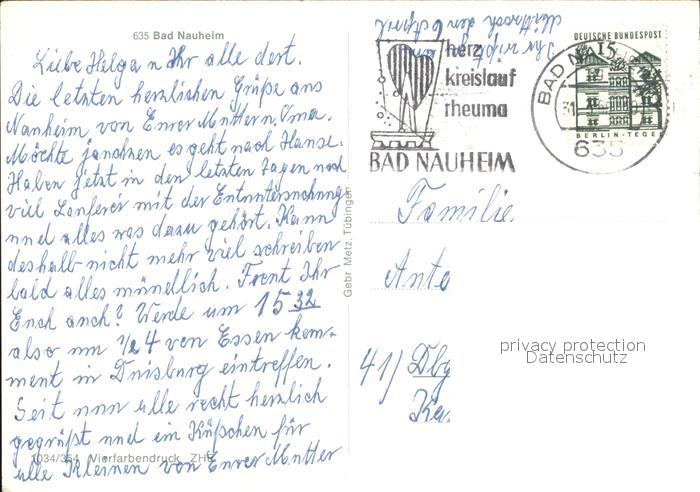 635 Bad Nauheim
Liebe Helga u Ihr alle dort.
Die letzten herzlichen Grüße aus
Nauheim von Eurer Mutter u. Oma.
Möchte jauchzen es geht nach Hause.
Haben jetzt in den letzten Tagen noch
viel Lauferei mit der Entuntersuchung
und alles was dazu gehört. Kann
deshalb nicht mehr viel schreiben
bald alles mündlich. Freut Ihr
Euch auch? Werde um 15 32
also um 1/2 4 von Essen kom-
ment in Duisburg eintreffen.
Seit nun alle recht herzlich
gegrüßt und ein Küßchen für
alle Kleinen von Eurer Mutter
1034/354 Vierfarbendruck ZHB
Gebr. Metz, Tübingen
Mittwoch den 6 April
herz
kreislauf
rheuma
BAD NAUHEIM
DEUTSCHE BUNDESPOST
15
BERLIN-TEGEL
BAD NAUHEIM
635
Familie
Anto
41) Dbg
Ka
privacy protection
Datenschutz